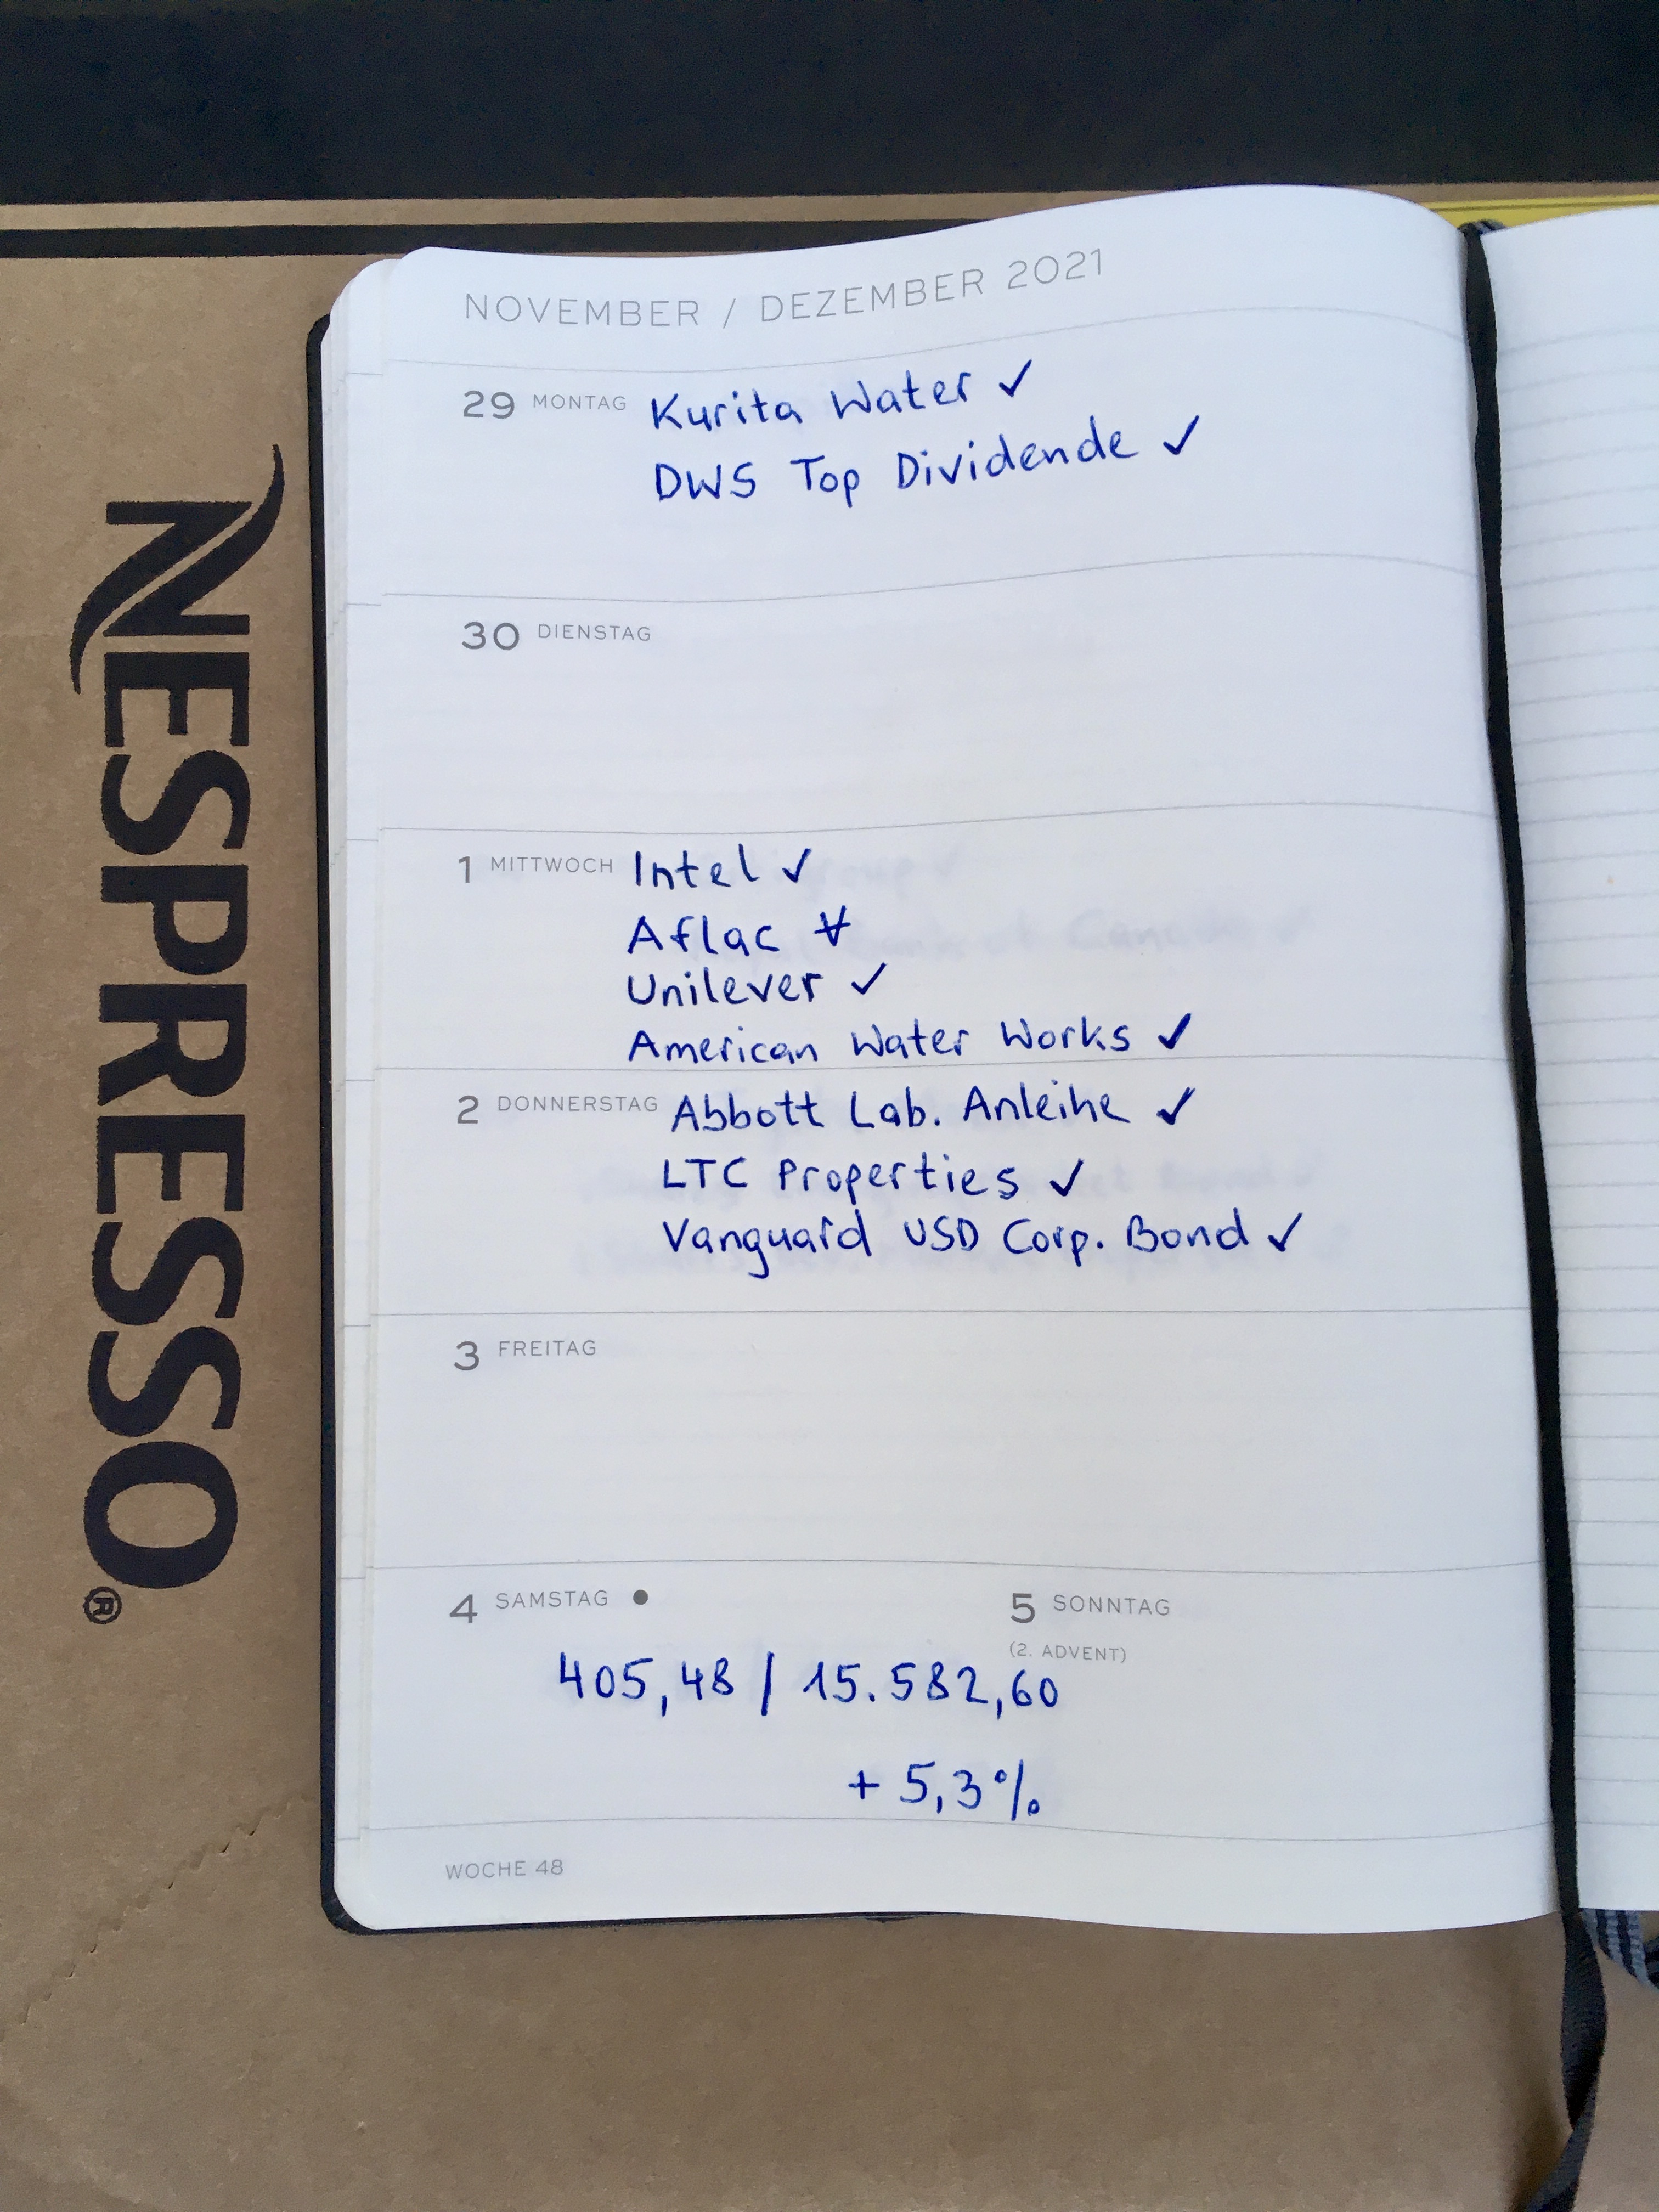 NESPRESSO®
NOVEMBER / DEZEMBER 2021
29 MONTAG Kurita Water ✓
DWS Top Dividende ✓
30 DIENSTAG
1 MITTWOCH Intel ✓
Aflac ✓
Unilever ✓
American Water Works ✓
2 DONNERSTAG Abbott Lab. Anleihe ✓
LTC Properties ✓
Vanguard USD Corp. Bond ✓
3 FREITAG
4 SAMSTAG ●
5 SONNTAG
(2. ADVENT)
405,48 / 15.582,60
+ 5,3%
WOCHE 48